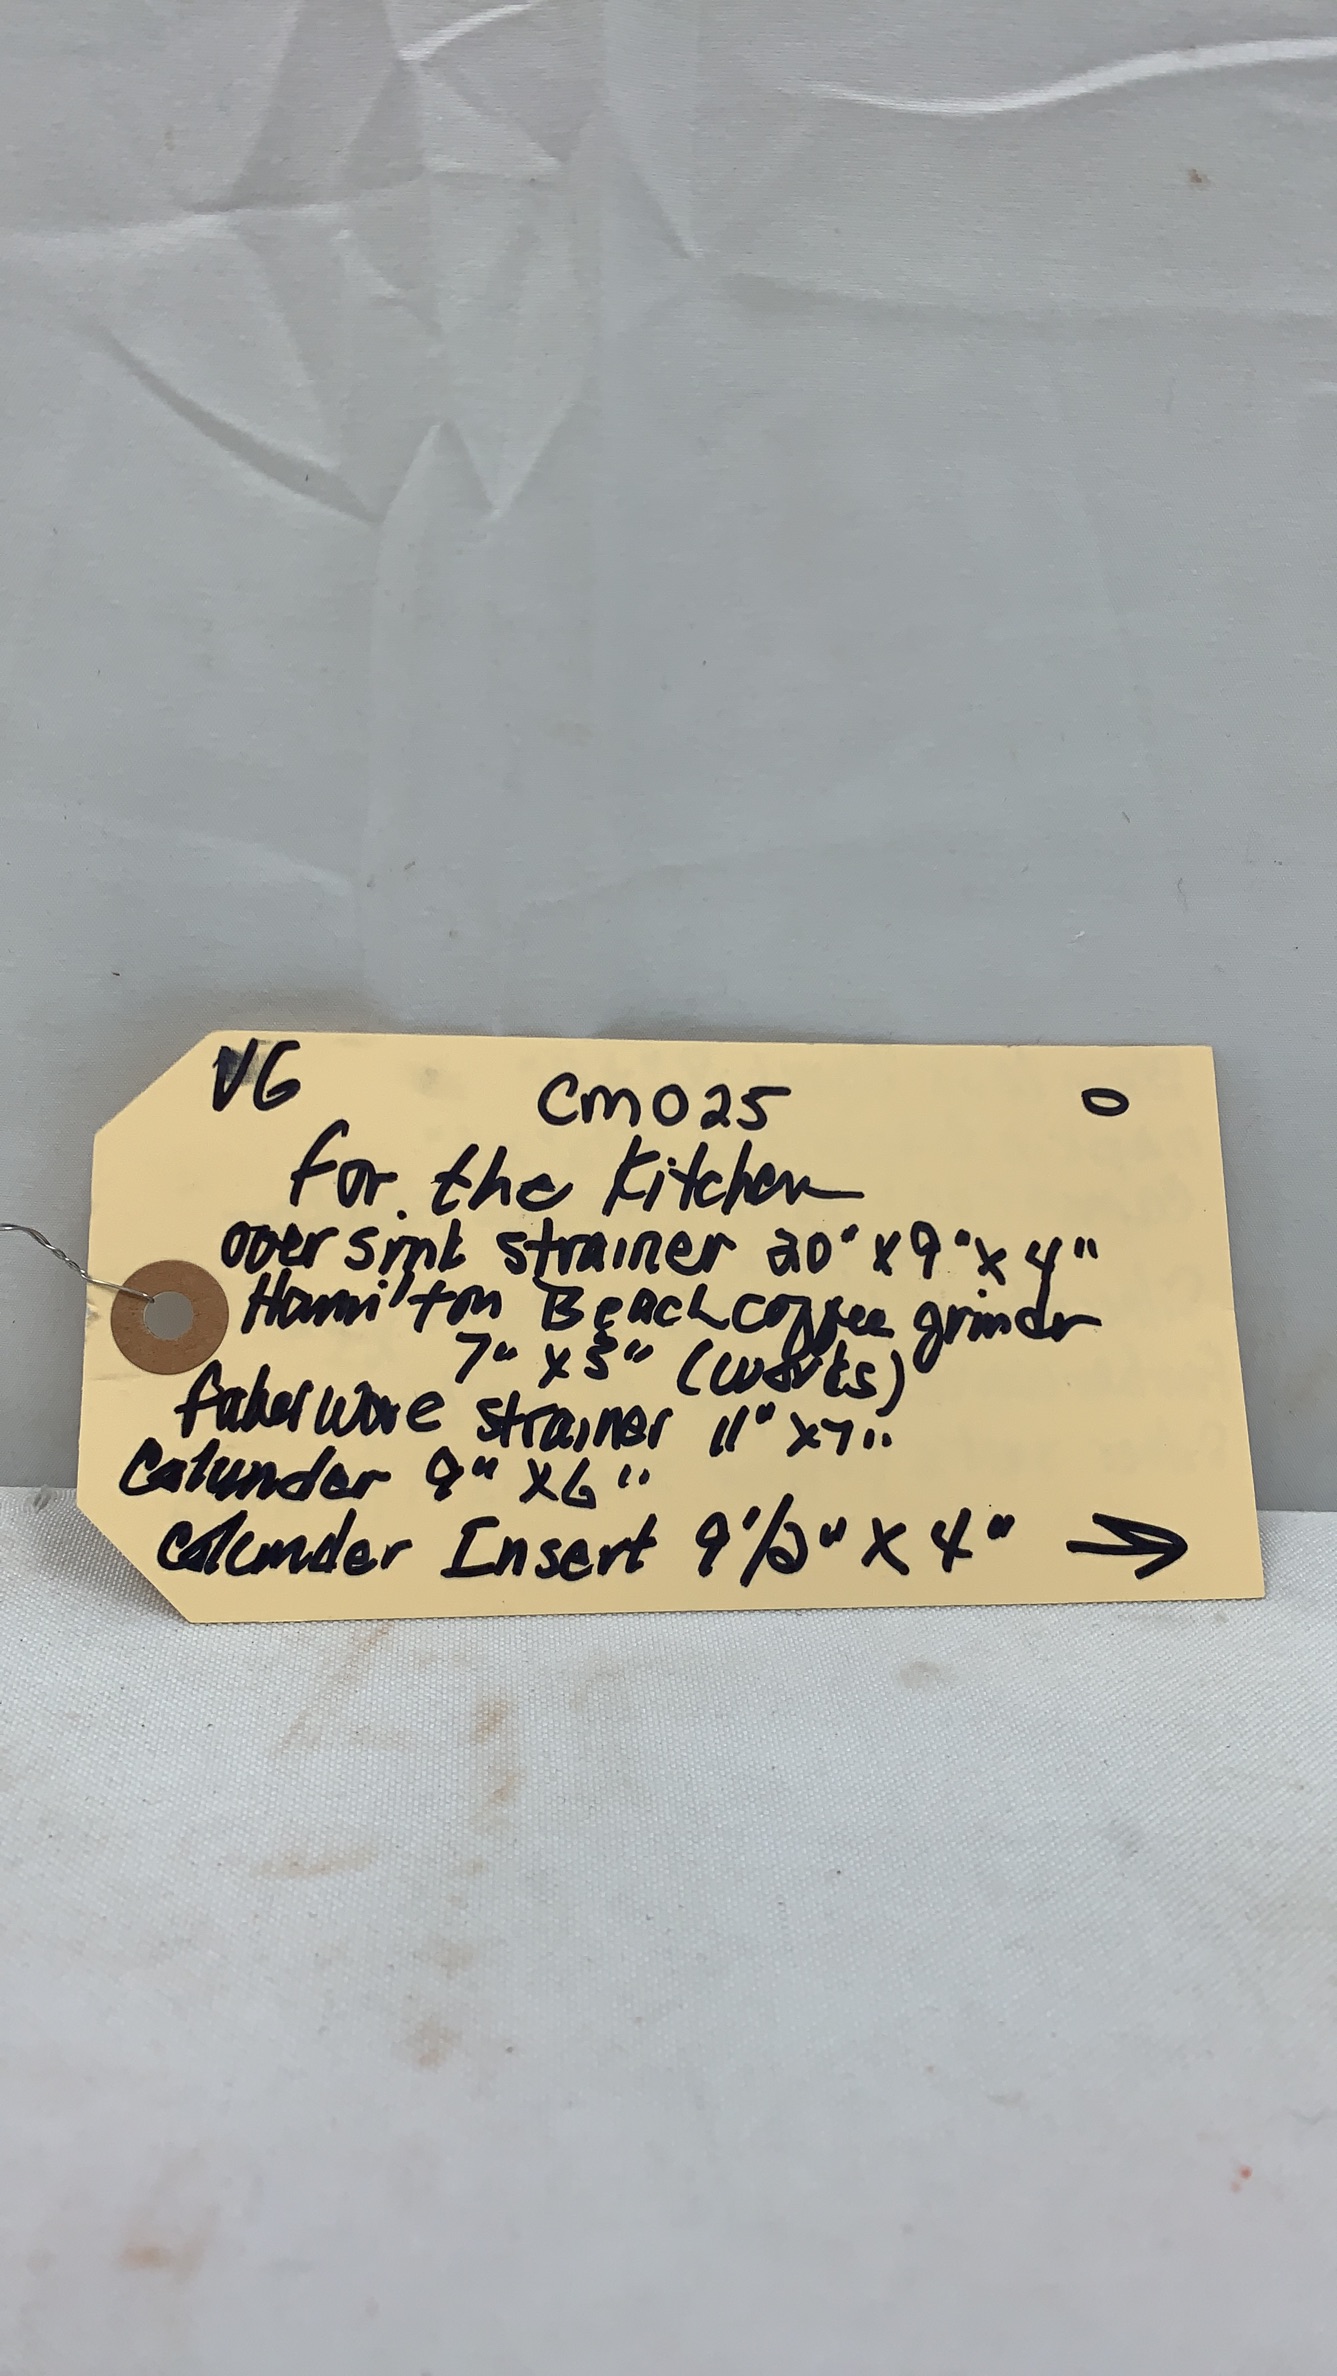 VG CM025 0
for the Kitchen
over sink strainer 20" x 9" x 4"
Hamilton Beach coffee grinder
7" x 3" (works)
faberware strainer 11" x 7"
Calunder 9" x 6"
colunder Insert 9 1/2" x 4" →